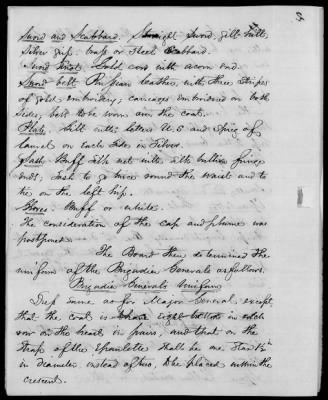 3.
Sword and Scabbard. Straight Sword, gilt hilt,
Silver grip. brass or Steel Scabbard.
Sword Knot: Gold cord with acorn end.
Sword belt Russian leather, with three stripes
of gold embroidery; carriages embroidered on both
sides; belt to be worn over the coat.
Plate. Gilt with letters U.S and sprig of
laurel on each side in Silver.
Sash Buff silk net with silk bullion fringe
ends; sash to go twice round the waist and to
tie on the left hip.
Gloves: Buff or white.
The consideration of the cap and plume was
postponed.
The Board then determined the
uniform of the Brigadier Generals as follows.
Brigadier Generals Uniform
Dress same as for Major General except
that the coat is to have eight buttons in each
row on the breast, in pairs, and that on the
strap of the Epaulette shall be one star 1½ in
in diameter instead of two, placed within the
crescent.